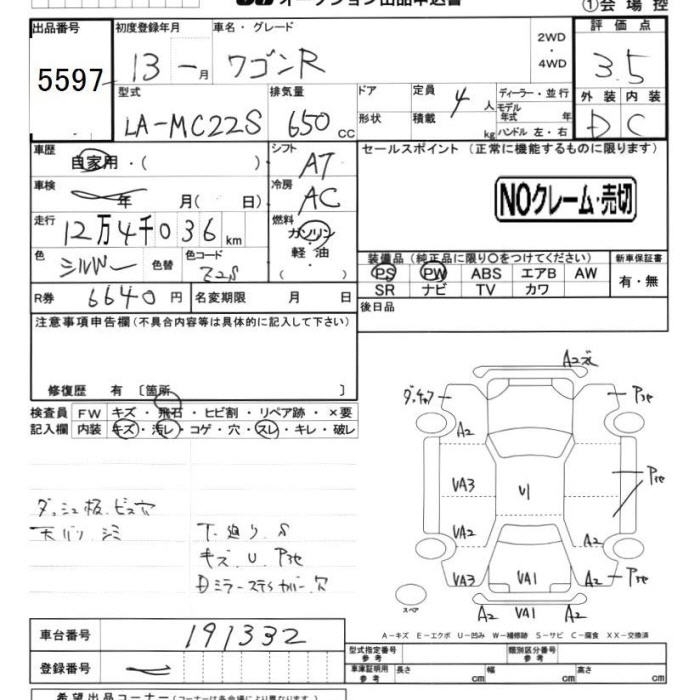 オークション出品申込書
①会場控
出品番号 初度登録年月 車名・グレード 2WD・4WD 評価点
5597 13 — 1月 ワゴンR 3.5
型式 排気量 ドア 形状 定員 4人 積載 kg ディーラー・並行 モデル年式 年 ハンドル 左・右 外装 内装
LA-MC22S 650 CC D C
車歴 自家用・( ) シフト AT セールスポイント (正常に機能するものに限ります)
車検 年 月( 日) 冷房 AC NOクレーム・売切
走行 12万4千036 km 燃料 ガソリン 軽油 ( )
色 シルバー 色替 色コード Z2S
装備品 (純正品に限り○をつけてください) 新車保証書
PS PW ABS エアB AW 有・無
SR ナビ TV カワ
R券 6640円 名変期限 月 日 後日品
注意事項申告欄 (不具合内容等は具体的に記入して下さい)
修復歴 有 [箇所 ]
検査員 FW キズ・飛石・ヒビ割・リペア跡・×要
記入欄 内装 キズ・汚レ・コゲ・穴・スレ・キレ・破レ
ダッシュ板.ビス穴
天バリ.シミ
下.廻り.S
キズ.U.
A2
A2
VA3
U1
VA2
A2
VA3
VA1
A2
A2 VA1 A2
スペア
A－キズ E－エクボ U－凹み W－補修跡 S－サビ C－腐食 XX－交換済
車台番号 191332
型式指定番号 参考 類別区分番号 参考
登録番号 —
車庫証明用 参考 長さ cm 幅 cm 高さ cm
希望出品コーナー